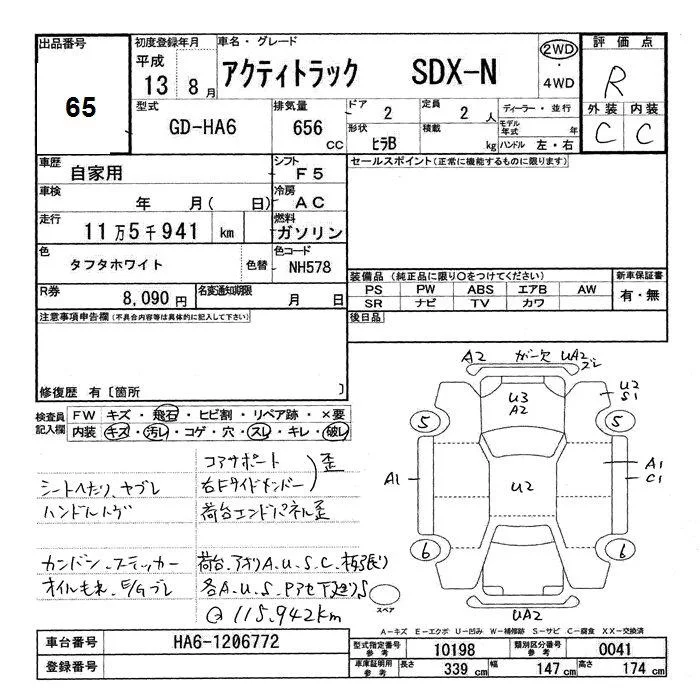 出品番号
65
初度登録年月
平成
13 8月
車名・グレード
アクティトラック SDX-N
2WD
・
4WD
評価点
R
外装 内装
C C
型式
GD-HA6
排気量
656
cc
ドア
2
定員
2 人
ディーラー・並行
形状
ヒラB
積載
kg
モデル年式
年
ハンドル 左・右
車歴
自家用
シフト
F5
車検
年 月( 日)
冷房
AC
走行
11万5千941 km
燃料
ガソリン
色
タフタホワイト
色替
色コード
NH578
R券
8,090円
名変通知期限
月 日
セールスポイント(正常に機能するものに限ります)
装備品(純正品に限り○をつけてください)
新車保証書
PS PW ABS エアB AW
SR ナビ TV カワ
有・無
後日品
注意事項申告欄(不具合内容等は具体的に記入して下さい)
修復歴 有〔箇所 〕
検査員
記入欄
FW キズ・飛石・ヒビ割・リペア跡・×要
内装 キズ・汚レ・コゲ・穴・スレ・キレ・破レ
コアサポート
右Fサイドメンバー
歪
荷台エンドパネル歪
シートヘたり、ヤブレ
ハンドルハゲ
カンバン、ステッカー
オイルもれ、E/Gブレ
荷台、アオリA.U.S.C.板張り
各A.U.S.Pアセ下廻りS
Q 115,942km
A2 ガ一欠 UA2
ズレ
U3
A2
U2
S1
5 5
A1
U2
A1
C1
6 6
UA2
スペア
A―キズ E―エクボ U―凹み W―補修跡 S―サビ C―腐食 XX―交換済
車台番号
HA6-1206772
登録番号
型式指定番号
参考
10198
類別区分番号
参考
0041
車庫証明用
参考
長さ
339 cm
幅
147 cm
高さ
174 cm